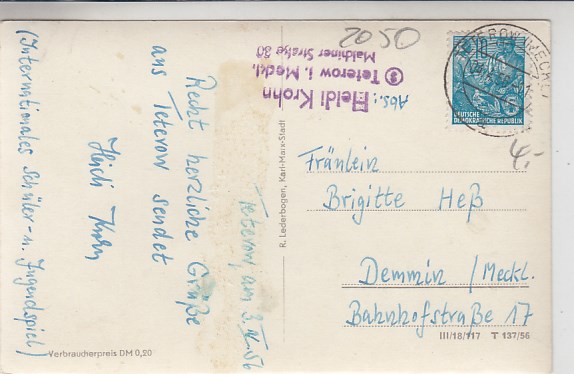 Teterow, am 3. IV. 56
Recht herzliche Grüße
aus Teterow sendet
Heidi Krohn
(Internationales Schüler- u. Jugendspiel)
Verbraucherpreis DM 0,20
R. Lederbogen, Karl-Marx-Stadt
2050
Abs.: Heidi Krohn
Teterow i. Meckl.
Malchiner Straße 30
10
DEUTSCHE
DEMOKRATISCHE REPUBLIK
TEROW (MECKL)
4,-
Fräulein
Brigitte Heß
Demmin /Meckl.
Bahnhofstraße 17
III/18/117 T 137/56